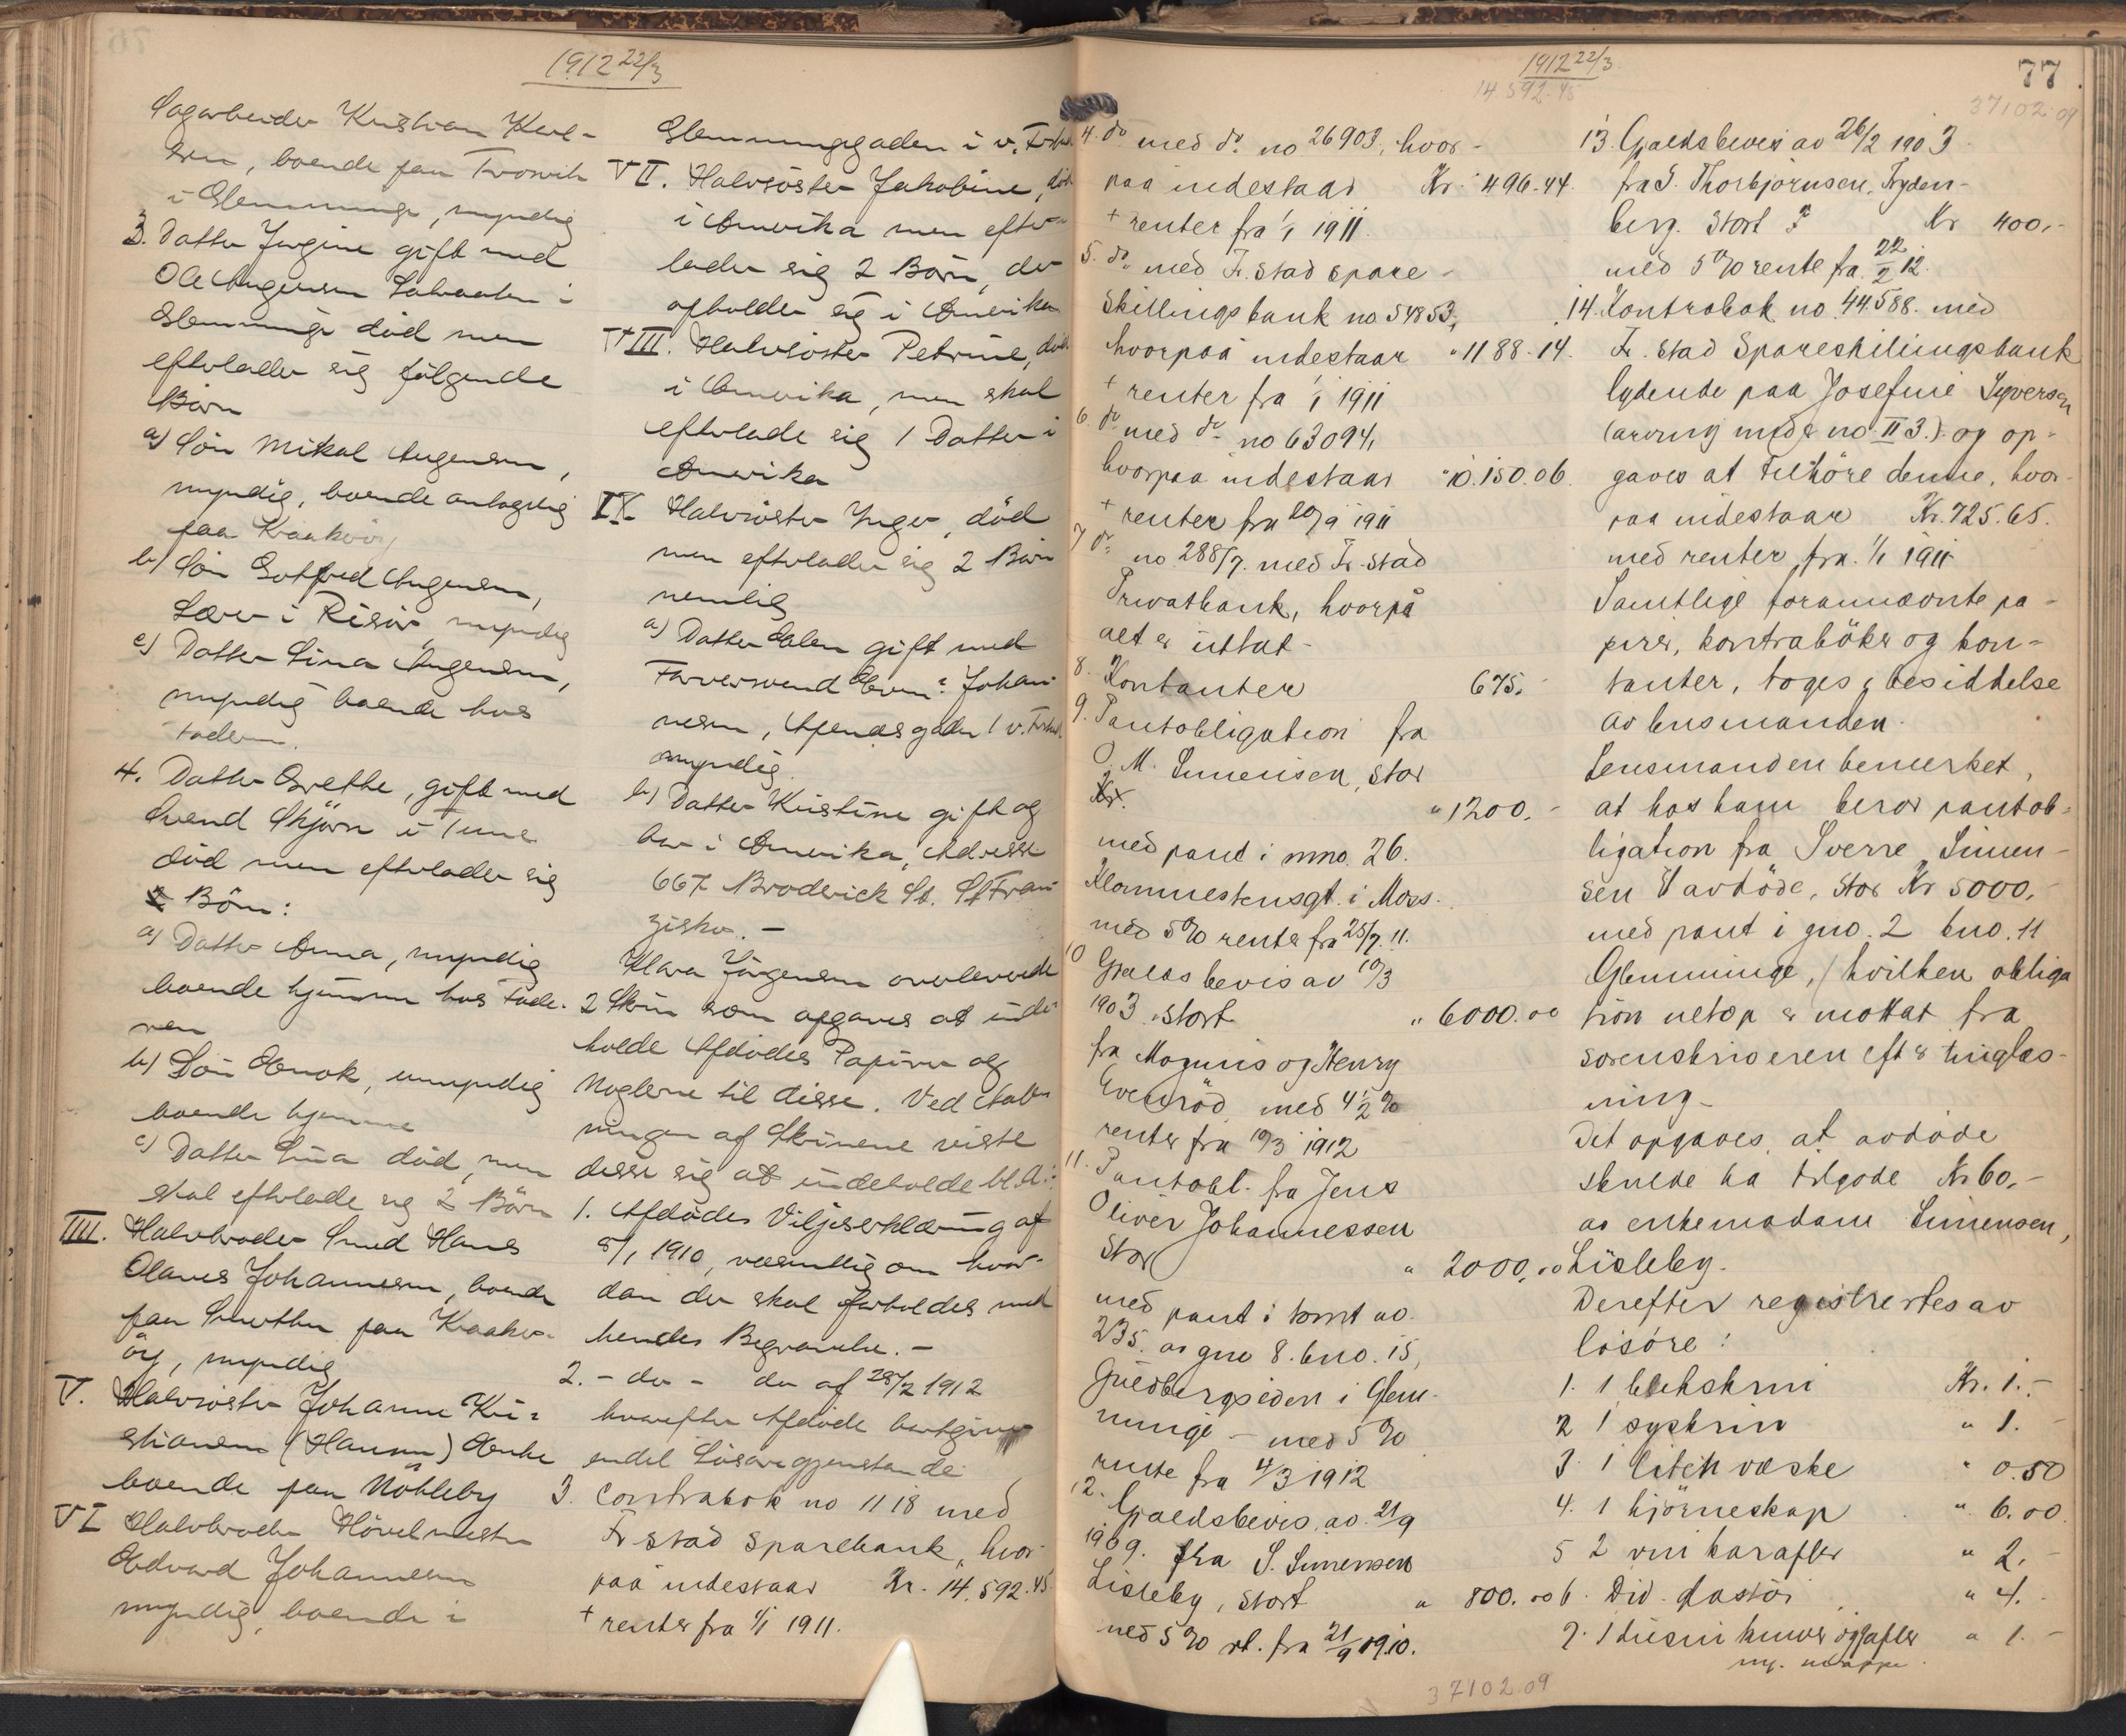 1912 22/3
Sagarbeider Kristian Karl-
sen, boende paa Trosvik
i Glemminge, myndig
3. Datter Jørgine gift med
Ole Augensen Labraaten i
Glemminge død men
efterlader sig følgende
Børn
a) Søn Mikal Augensen,
myndig, boende antagelig
paa Kraakerøy
b) Søn Gotfred Augensen,
Lærer i Risør myndig
c) Datter Lina Augensen,
myndig boende hos
Faderen.
4. Datter Grethe, gift med
Svend Skjørn i Tune
død men efterlader sig
Børn:
a) Datter Anna, myndig
boende hjemme hos Fade-
ren
b) Søn Enok, umyndig
boende hjemme
c) Datter Lina død, men
skal efterlade sig 2 Børn
IIII. Halvbroder Smed Hans
Olaves Johannesen, boende
paa Smertu paa Kraaker-
øy, myndig
V. Halvsøster Johanne Kri-
stiansen (Hansen) Enke
boende paa Nøkleby
VI Halvbroder Høvelmester
Edvard Johannesen
myndig, boende i
Glemminggaden i v. Frstad
VII. Halvsøster Jakobine, død
i Amerika men efter-
lader sig 2 Børn, der
opholder sig i Amerika
VIII. Halvsøster Petrine, død
i Amerika, men skal
efterlade sig 1 Datter i
Amerika
IX. Halvsøster Inger, død
men efterlader sig 2 Børn
nemlig
a) Datter Elen gift med
Farversvend Johan-
nesen, gaden 1 v. Frstad
myndig.
b) Datter Kristine gift og
bor i Amerika, Adresse
667 Broderick St. St Fran-
zisko. -
Klara Jørgensen overleverede
2 Skrin som opgaves at inde-
holde Afdødes Papirer og
Nøglerne til disse. Ved Aab-
ningen af Skrinene viste
disse sig at indeholde bl.A.:
1. Afdødes Viljeserklæring af
8/1 1910, væsentlig om hvor-
dan der skal forholdes med
hendes Begravelse. -
2. - do - do af 28/2 1912
hvorefter Afdøde bortgiver
endel Løsøregjenstande
3. Contrabok no 1118 med
Fr stad Sparebank, hvor
paa indestaar Kr. 14.592.45
+ renter fra 1/1 1911.
1912 22/3
14 592.45
77
37102.09
4. do med do. no 26903, hvor-
paa indestaar Kr. 496.44.
+ renter fra 1/1 1911.
5. do. med Fr. stad spare-
skillingsbank no 54853,
hvorpaa indestaar " 1188.14.
+ renter fra 1/1 1911
6. do med do no 63094,
hvorpaa indestaar " 10.150.06.
+ renter fra 20/9 1911
7 do. no 288/7. med Fr. stad
Privatbank, hvorpå
alt er uttat-
8. Kontanter 675.-
9. Pantobligation fra
O. M. Simensen, stor
Kr. " 1200.-
med pant i mno. 26.
Klommestensgt. i Moss.
med 5% rente fra 25/7. 11.
10 Gjældsbevis av 10/3
1903 stort " 6000.00
fra Magnus og Henry
Evenrød med 4 1/2 %
renter fra 10/3 1912
11. Pantobl. fra Jens
Oliver Johannessen
stor " 2000.00
med pant i tomt av
235. av gno 8. bno. 15,
Guldbergsiden i Glem-
minge - med 5 %
rente fra 4/3 1912
12. Gjældsbevis av 21/9
1909. fra S. Simensen
Lisleby, stort " 800.00
med 5 % rt. fra 21/9 1910.
37102.09
13. Gjældsbevis av 26/2 1903
fra S. Thorbjørnsen, Tryden-
berg. stort Kr 400,-
med 5 % rente fra 22/2 12.
14. Kontrabok no. 44588. med
Fr. stad Spareskillingsbank
lydende paa Josefine Syversen
(arving under no II 3.) og op-
gaves at tilhöre denne, hvor-
paa indestaar Kr. 725.65.
med renter fra 1/1 1911
Samtlige forannævnte pa-
pirer, kontraböker og kon-
tanter, toges i besiddelse
av lensmanden.
Lensmanden bemerket,
at hos ham beror pantob-
ligation fra Sverre Simen-
sen t avdöde, stor Kr 5000,-
med pant i gno. 2 bno. 11
Glemminge, hvilken obliga
tion netop er mottat fra
sorenskriveren efter tinglæs-
ning-
Det opgaves, at avdøde
skulde ha tilgode Kr 60,-
av enkemadam Simensen,
Lisleby.
Derefter registrertes av
lösöre:
1. 1 blekskrin Kr. 1.-
2 1 syskrin " 1.-
3. 1 liten væske " 0.50
4. 1 hjørneskap " 6.00
5 2 vin karafler " 2.-
6. Div. glastöi " 4.-
7. 1 dusin kniver og gafler " 1.-